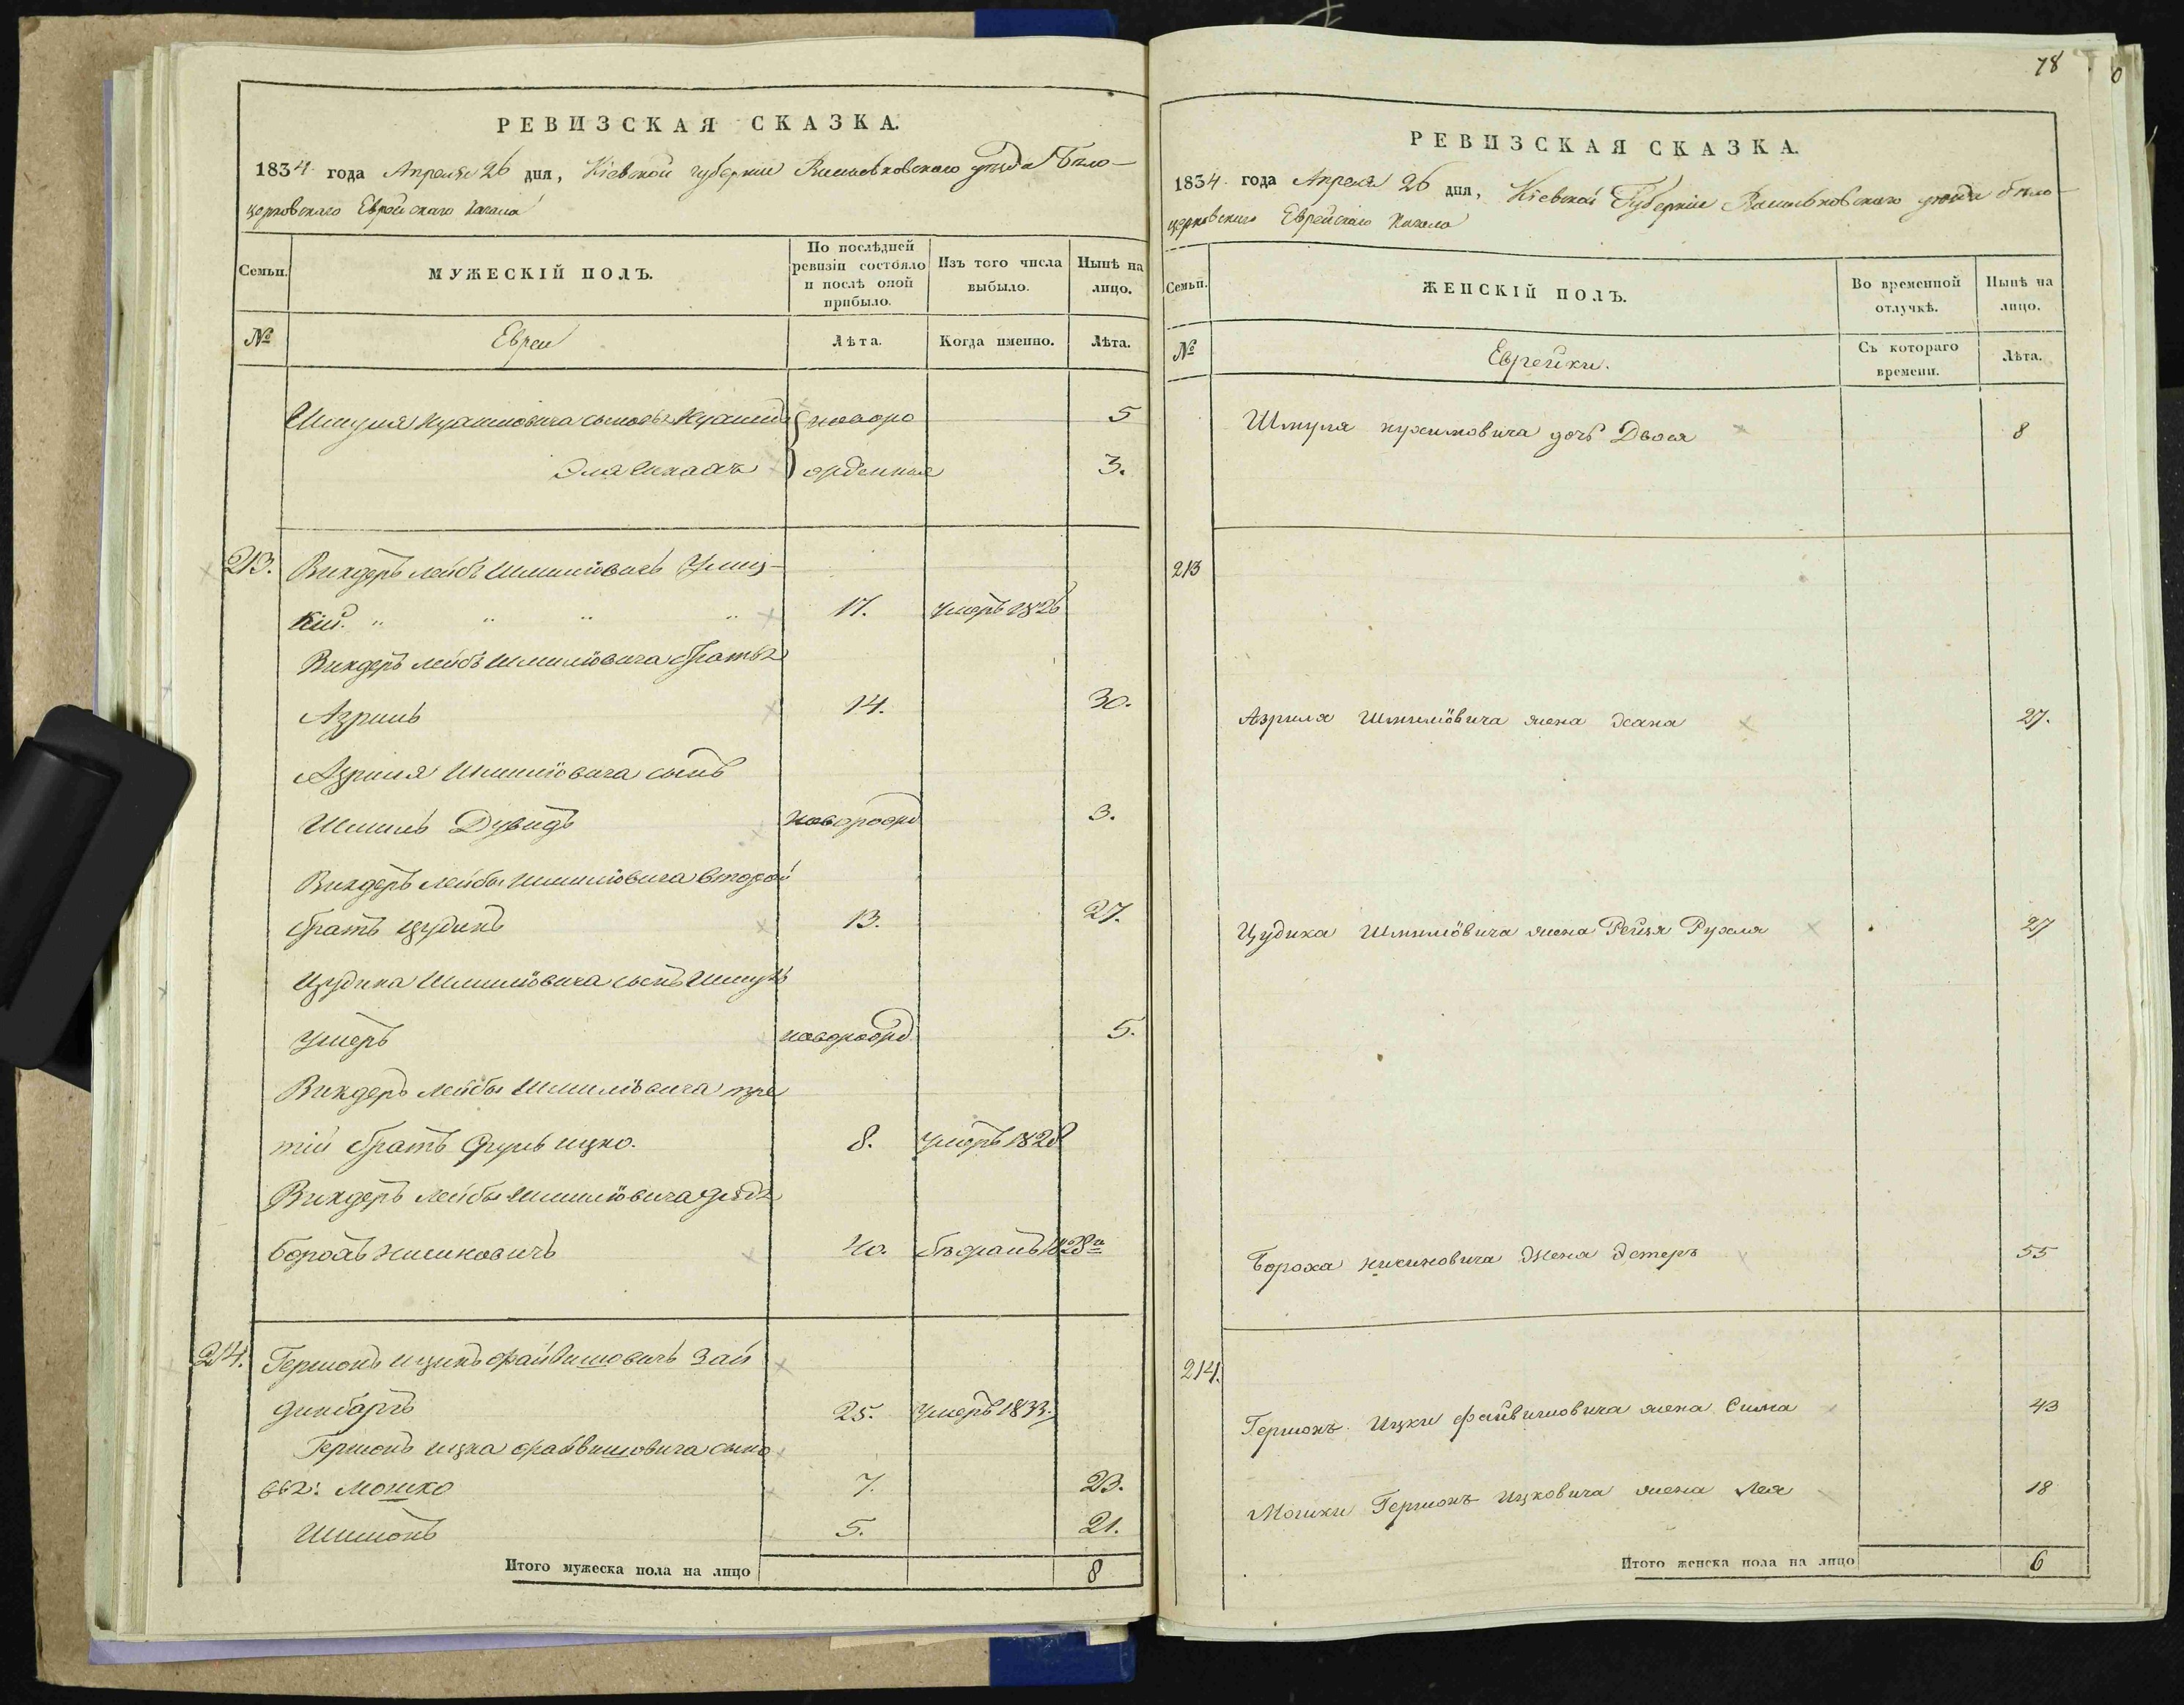 РЕВИЗСКАЯ СКАЗКА.
1834 года Апреля 26 дня, Кіевской губерніи Васильковскаго уѣзда Бѣло-
церковскаго Еврейскаго Кагала
Семьи.
МУЖЕСКІЙ ПОЛЪ.
По послѣдней ревизіи состояло и послѣ оной прибыло.
Изъ того числа выбыло.
Нынѣ на лицо.
№
Евреи
Лѣта.
Когда именно.
Лѣта.
Шмуля Нухимовича сыновья Нухимъ новоро 5
Эля орденныя 3.
213. Вигдеръ Лейбъ Шмилiовичь Умиц-
кій. " " " " 17. умеръ 1826
Вигдеръ Лейбъ Шмилiовича братья
Азриль 14. 30.
Азриля Шмилiовича сынъ
Шмиль Дувидъ новорожд 3.
Вигдеръ Лейбы Шмилiовича второй
братъ Цудикъ 13. 27.
Цудика Шмилiовича сынъ Шмуль
умеръ новорожд. 5.
Вигдеръ Лейбы Шмилiовича тре
тій братъ Сруль Ицко. 8. умеръ 1828
Вигдеръ Лейбы Шмилiовича дядя
Борохъ Нисиновичъ 40. 1828
214. Гершонъ Ицикъ Файвишовичъ Зай
динбаргъ 25. умеръ 1833.
Гершонъ Ицка Файвишовича сыно
вья: Мошко 7. 23.
Шимонъ 5. 21.
Итого мужеска пола на лицо 8
78
РЕВИЗСКАЯ СКАЗКА.
1834 года Апреля 26 дня, Кіевской Губерніи Васильковскаго уѣзда бѣло-
церковскаго Еврейскаго Кагала
Семьи.
ЖЕНСКІЙ ПОЛЪ.
Во временной отлучкѣ.
Нынѣ на лицо.
№
Еврейки.
Съ котораго времени.
Лѣта.
Шмуля Нухимовича дочь Двося 8
213
Азриля Шмилiовича жена Хана 27.
Цудика Шмилiовича жена Рейзя Рухля 27
Бороха Нисиновича жена Эстеръ 55
214.
Гершонъ Ицки Файвишовича жена Сима 43
Мошки Гершонъ Ицковича жена Лея 18
Итого женска пола на лицо 6